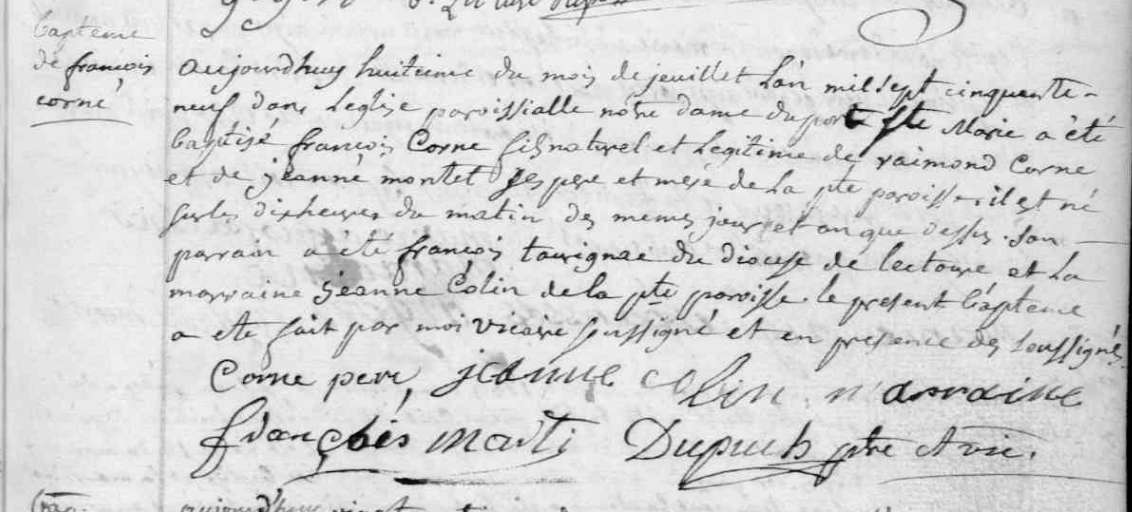 bapteme
de françois
corne
aujourdhuy huitieme du mois de jeuillet L'an mil sept cinquante-
neuf dans Leglise paroissialle notre dame du port Ste Marie a été
baptisé françois Corne fils naturel et Legitime de raimond Corne
et de jeanne montet ses pere et mere de La pte paroisse. il est né
sur les dix heures du matin des memes jour et an que dessus. Son
parrain a eté françois tavrignac du diocese de lectoure et La
marraine jeanne Colin de la pte paroisse. le present bapteme
a eté fait par moi vicaire soussigné et en presence des soussignés
Corne pere, jeanne colin marraine
françois marti Dupuch ptre et vic.
aujourd'huy vingt